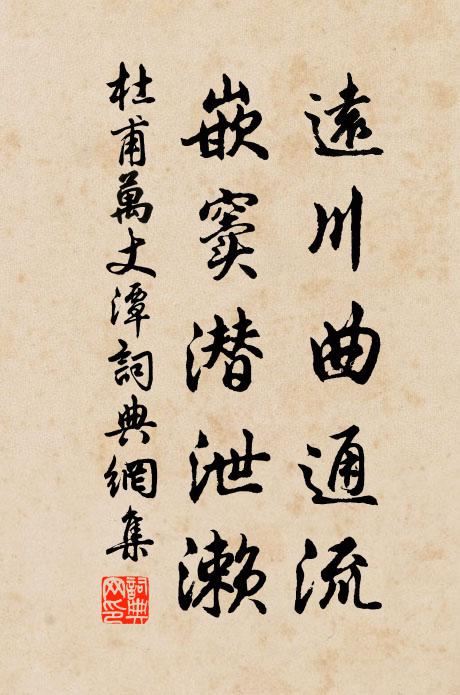 遠川曲通流
嵌竇潜泄濑
杜甫萬丈潭詞典網集
詞典網印